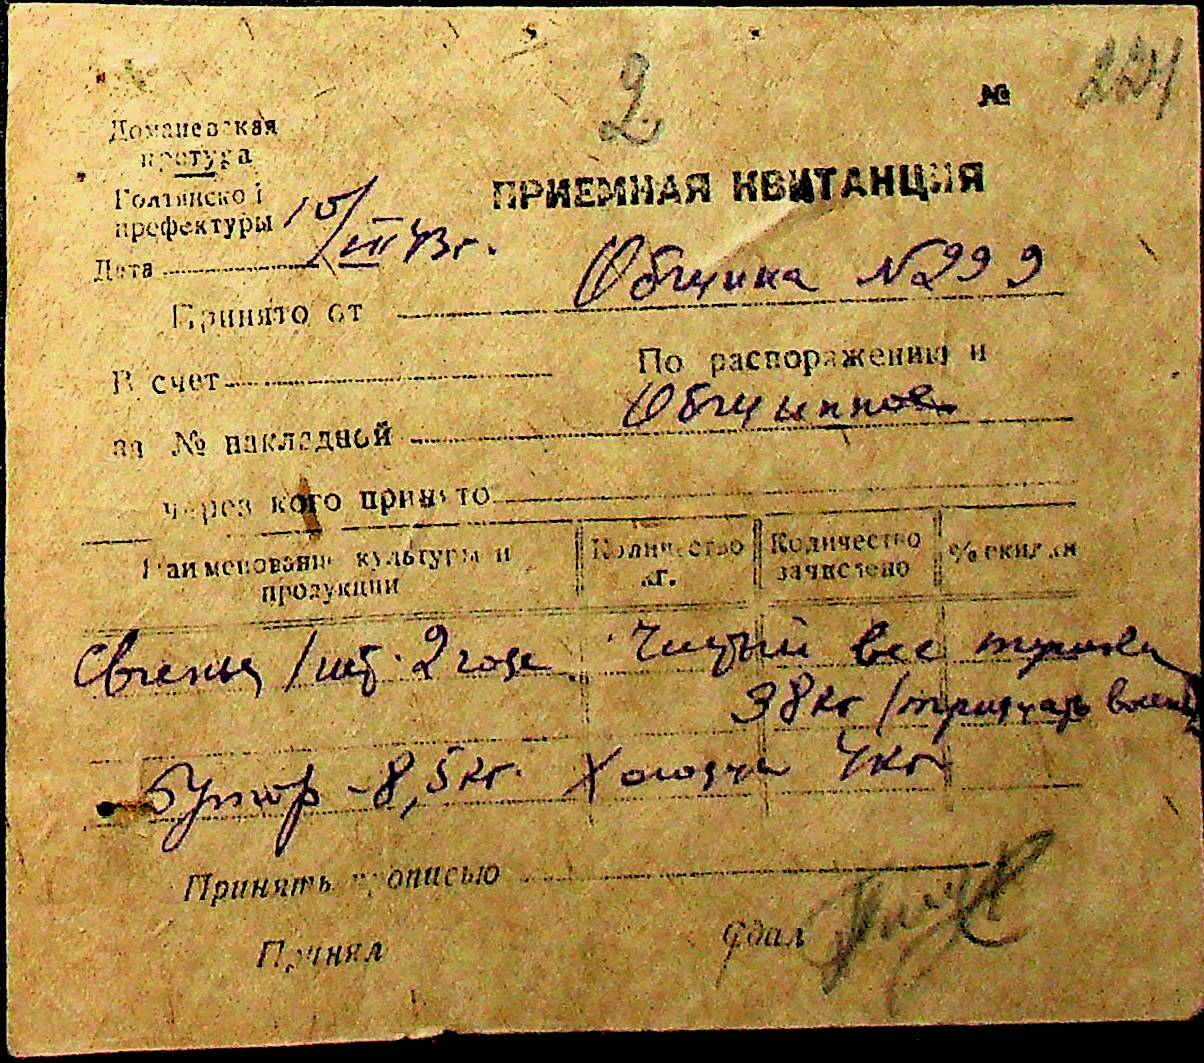 2 № 224
Доманевская
претура
Голтянскоі
префектуры
ПРИЕМНАЯ КВИТАНЦИЯ
Дата 10/VII 43 г.
Принято от Община № 299
В счет По распоражению и
за № накладной Общинное
через кого принято
Наименование культуры и продукции
Количество кг.
Количество зачислено
% скидки
1 шт. 2 года Чистый вес
38 кг /тридцать восемь
8,5 кг. 4 кг
Принять прописью
Принял Сдал